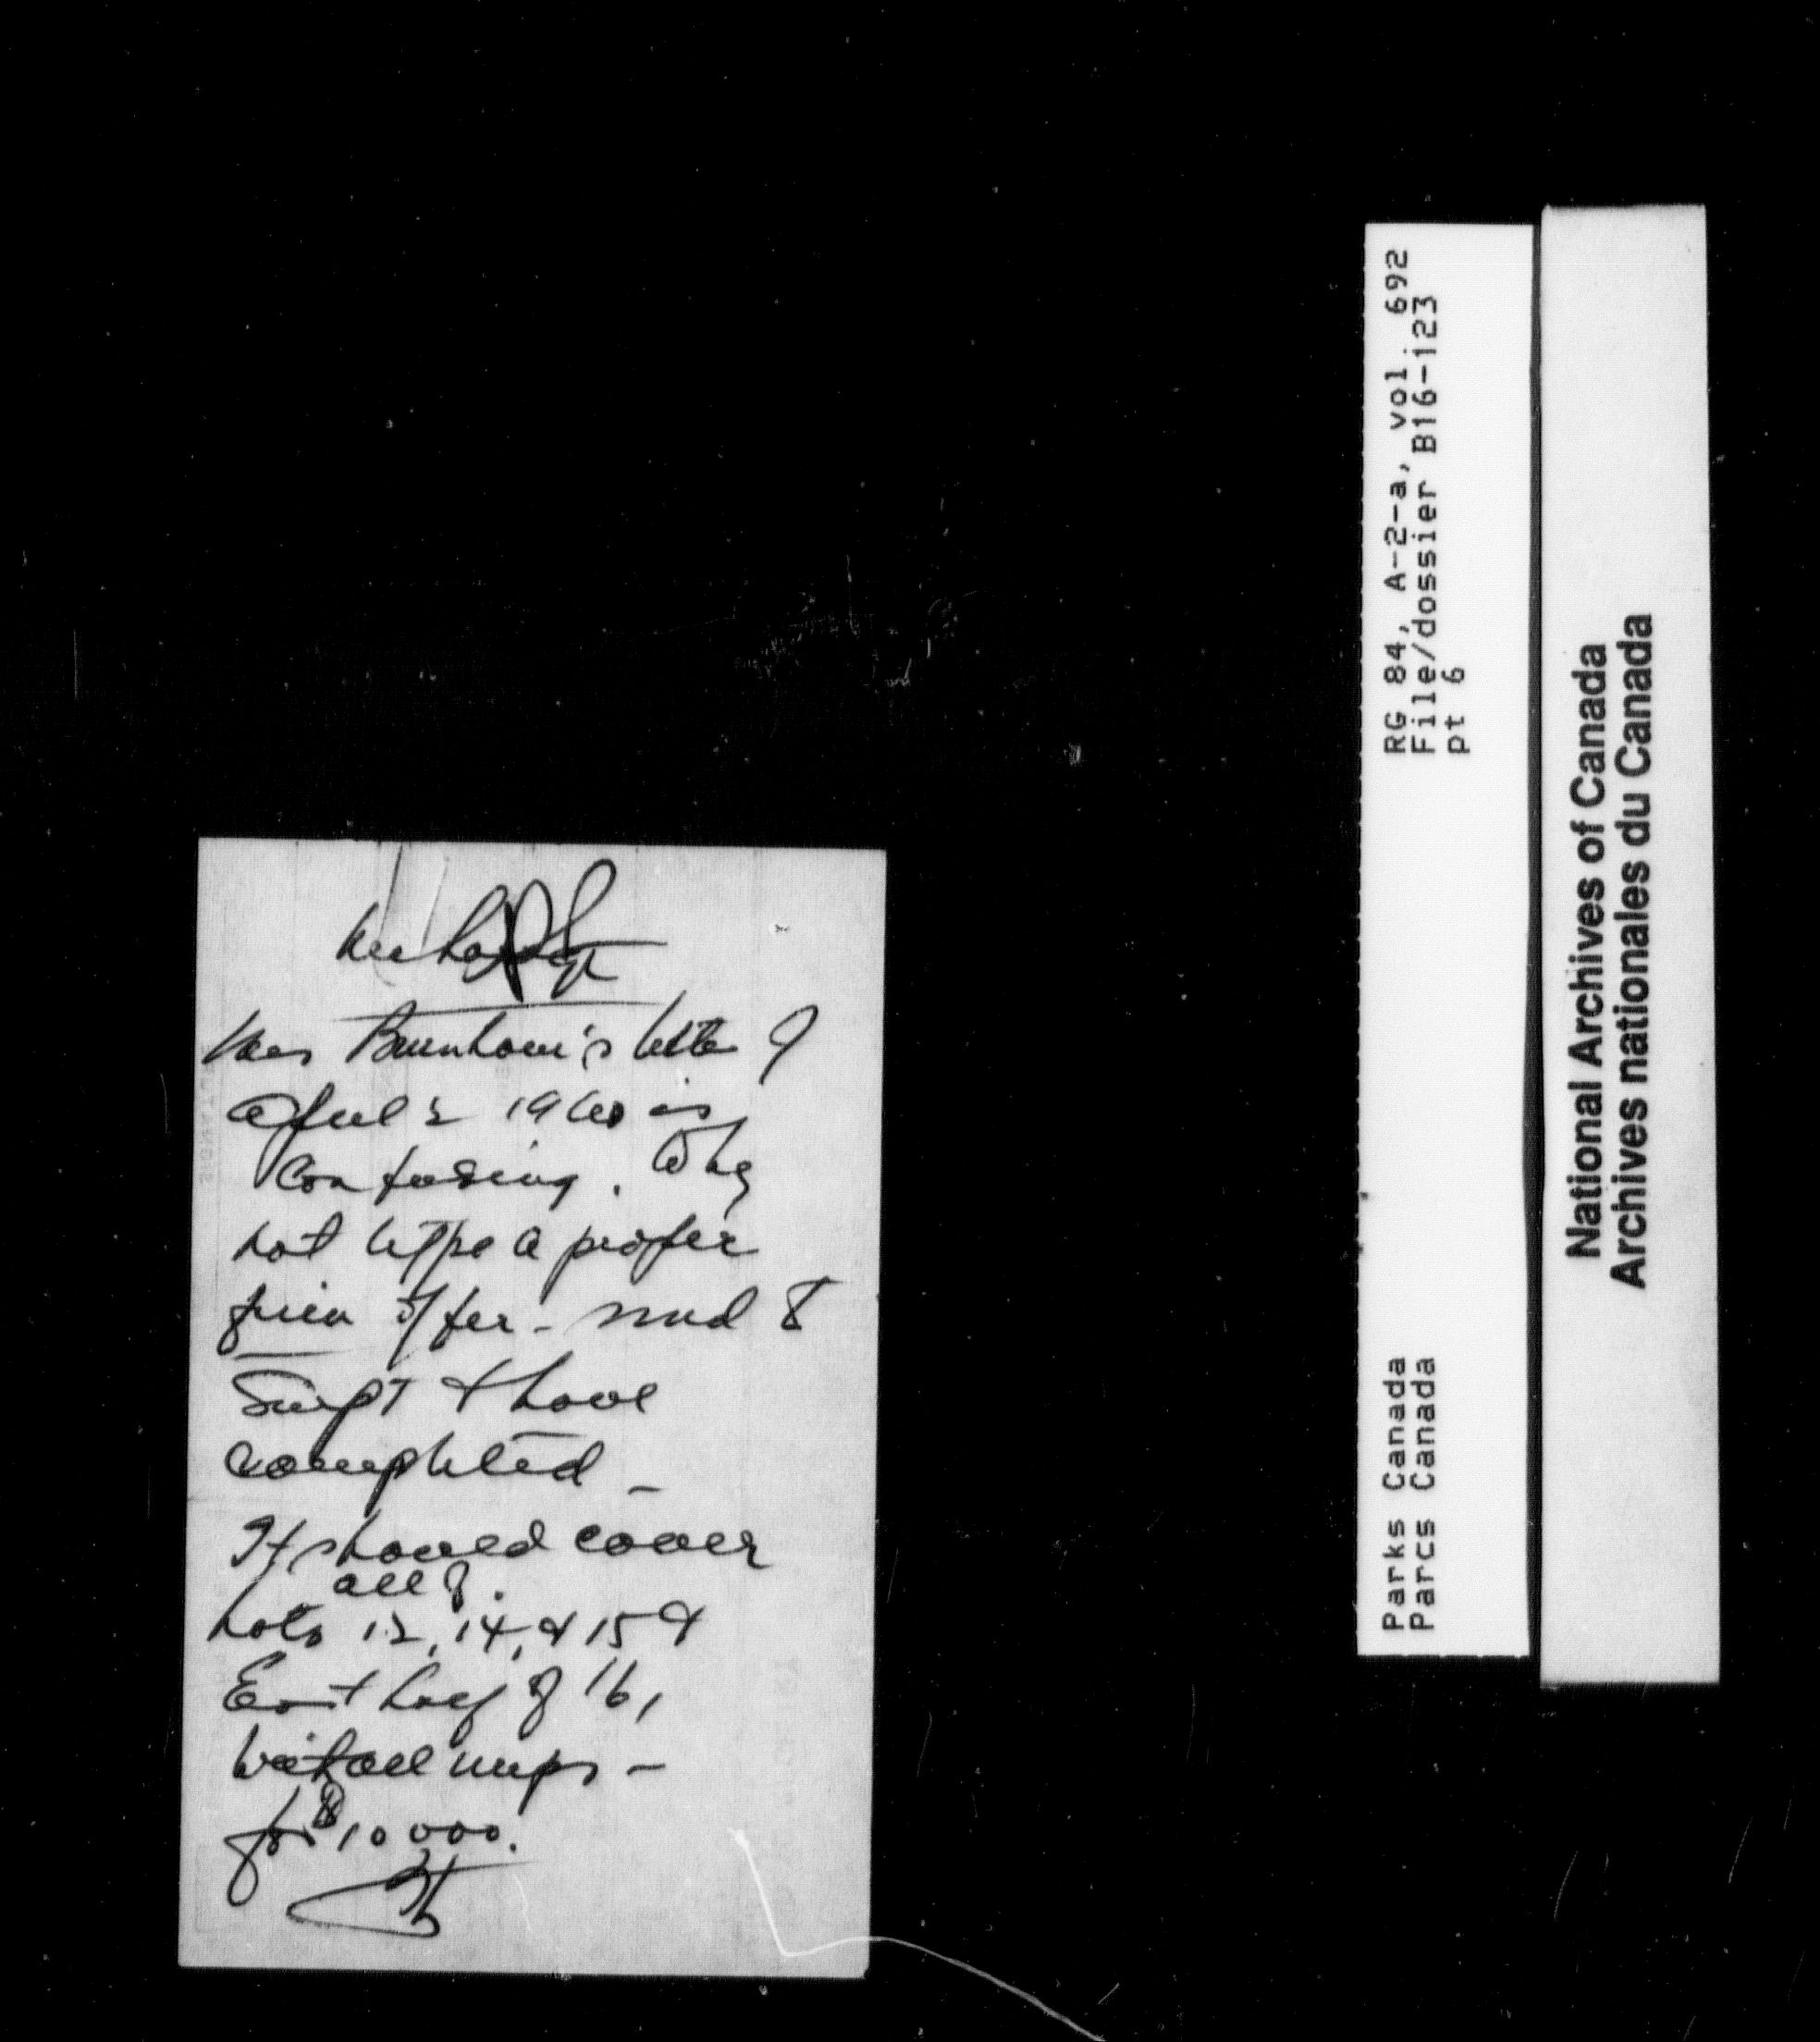 Mrs Burnham's letter of
April 2 1960 is
Confusing. Why
not type a proper
firm offer - send to
Supt & have
completed -
It should cover
all of
Lots 13, 14, & 15 &
East half of 16,
with all imps -
for $10 000.
RG 84, A-2-a, vol. 692
File/dossier B16-123
pt 6
Parks Canada
Parcs Canada
National Archives of Canada
Archives nationales du Canada